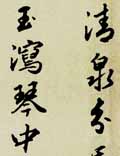 清泉分
玉瀉琴中